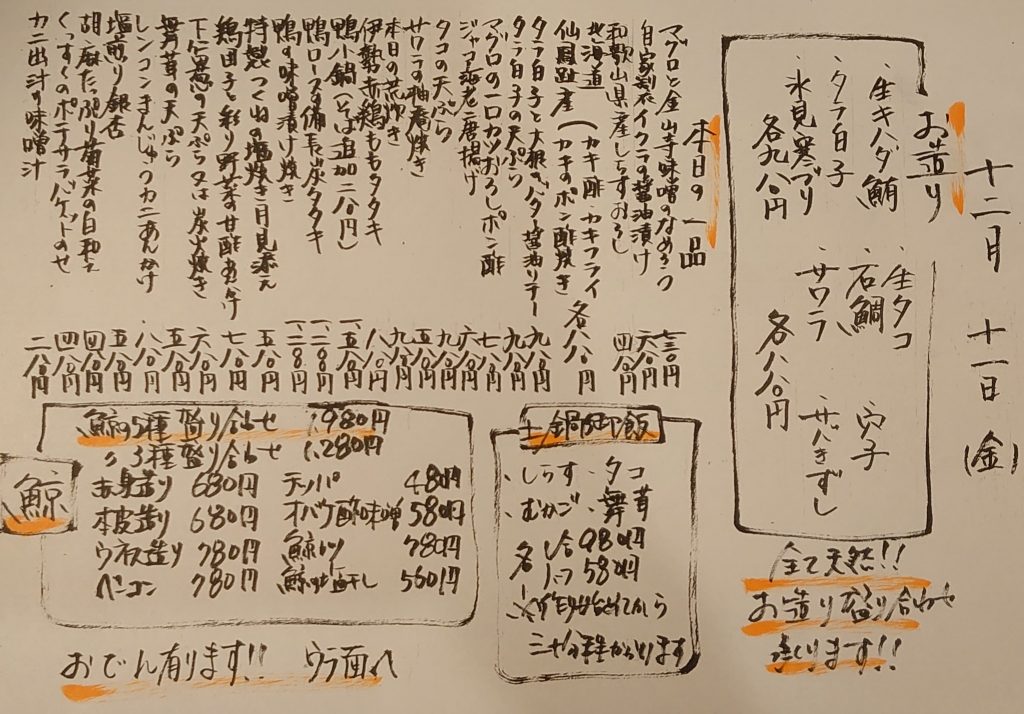 十二月 十一日 (金)
お造り
・生キハダ鮪
・タラ白子
・氷見寒ブリ
各九八〇円
・生タコ
・石鯛
・サワラ
各八八〇円
・穴子
・サバきずし
全て天然!!
お造り盛り合わせ
造ります!!
本日の一品
マグロと金山寺味噌のなめろう 七二〇円
自家製イクラの醤油漬け 六八〇円
和歌山県産しらすおろし 四八〇円
北海道
仙鳳趾産 (カキ酢 カキフライ カキのポン酢焼き 各八八〇円
タラ白子と大根のバター醤油ソテー 九八〇円
タラ白子の天ぷら 九八〇円
マグロの一口カツおろしポン酢 七八〇円
ジャコ海老二度揚げ 六八〇円
タコの天ぷら 九八〇円
サワラの柚庵焼き 九八〇円
本日の荒炊き 五八〇円
伊勢赤鶏ももタタキ 九八〇円
鴨小鍋(そば追加二八〇円) 一、五八〇円
鴨ロースの備長炭タタキ 一、二八〇円
鴨の味噌漬け焼き 一、二八〇円
特製つくねの塩焼き 月見添え 五八〇円
鶏団子と彩り野菜の甘酢あんかけ 七八〇円
下仁田葱の天ぷら又は炭火焼き 六八〇円
舞茸の天ぷら 五八〇円
レンコンまんじゅうカニあんかけ 八八〇円
塩煎り銀杏 五八〇円
胡麻たっぷり菊菜の白和え 四八〇円
くんすくのポテサラバケットのせ 四八〇円
カニ出汁の味噌汁 二八〇円
土鍋御飯
・しらす ・タコ
・むかご ・舞茸
各 1合 980円
1/2 580円
三十分程かかります
鯨
鯨の5種盛り合わせ 1,980円
〃 3種盛り合わせ 1,280円
赤身造り 680円
本皮造り 680円
ウネス造り 780円
ベーコン 780円
テッパ 480円
オバケ酢味噌 580円
鯨カツ 780円
鯨の塩干し 560円
おでん有ります!! ウラ面へ